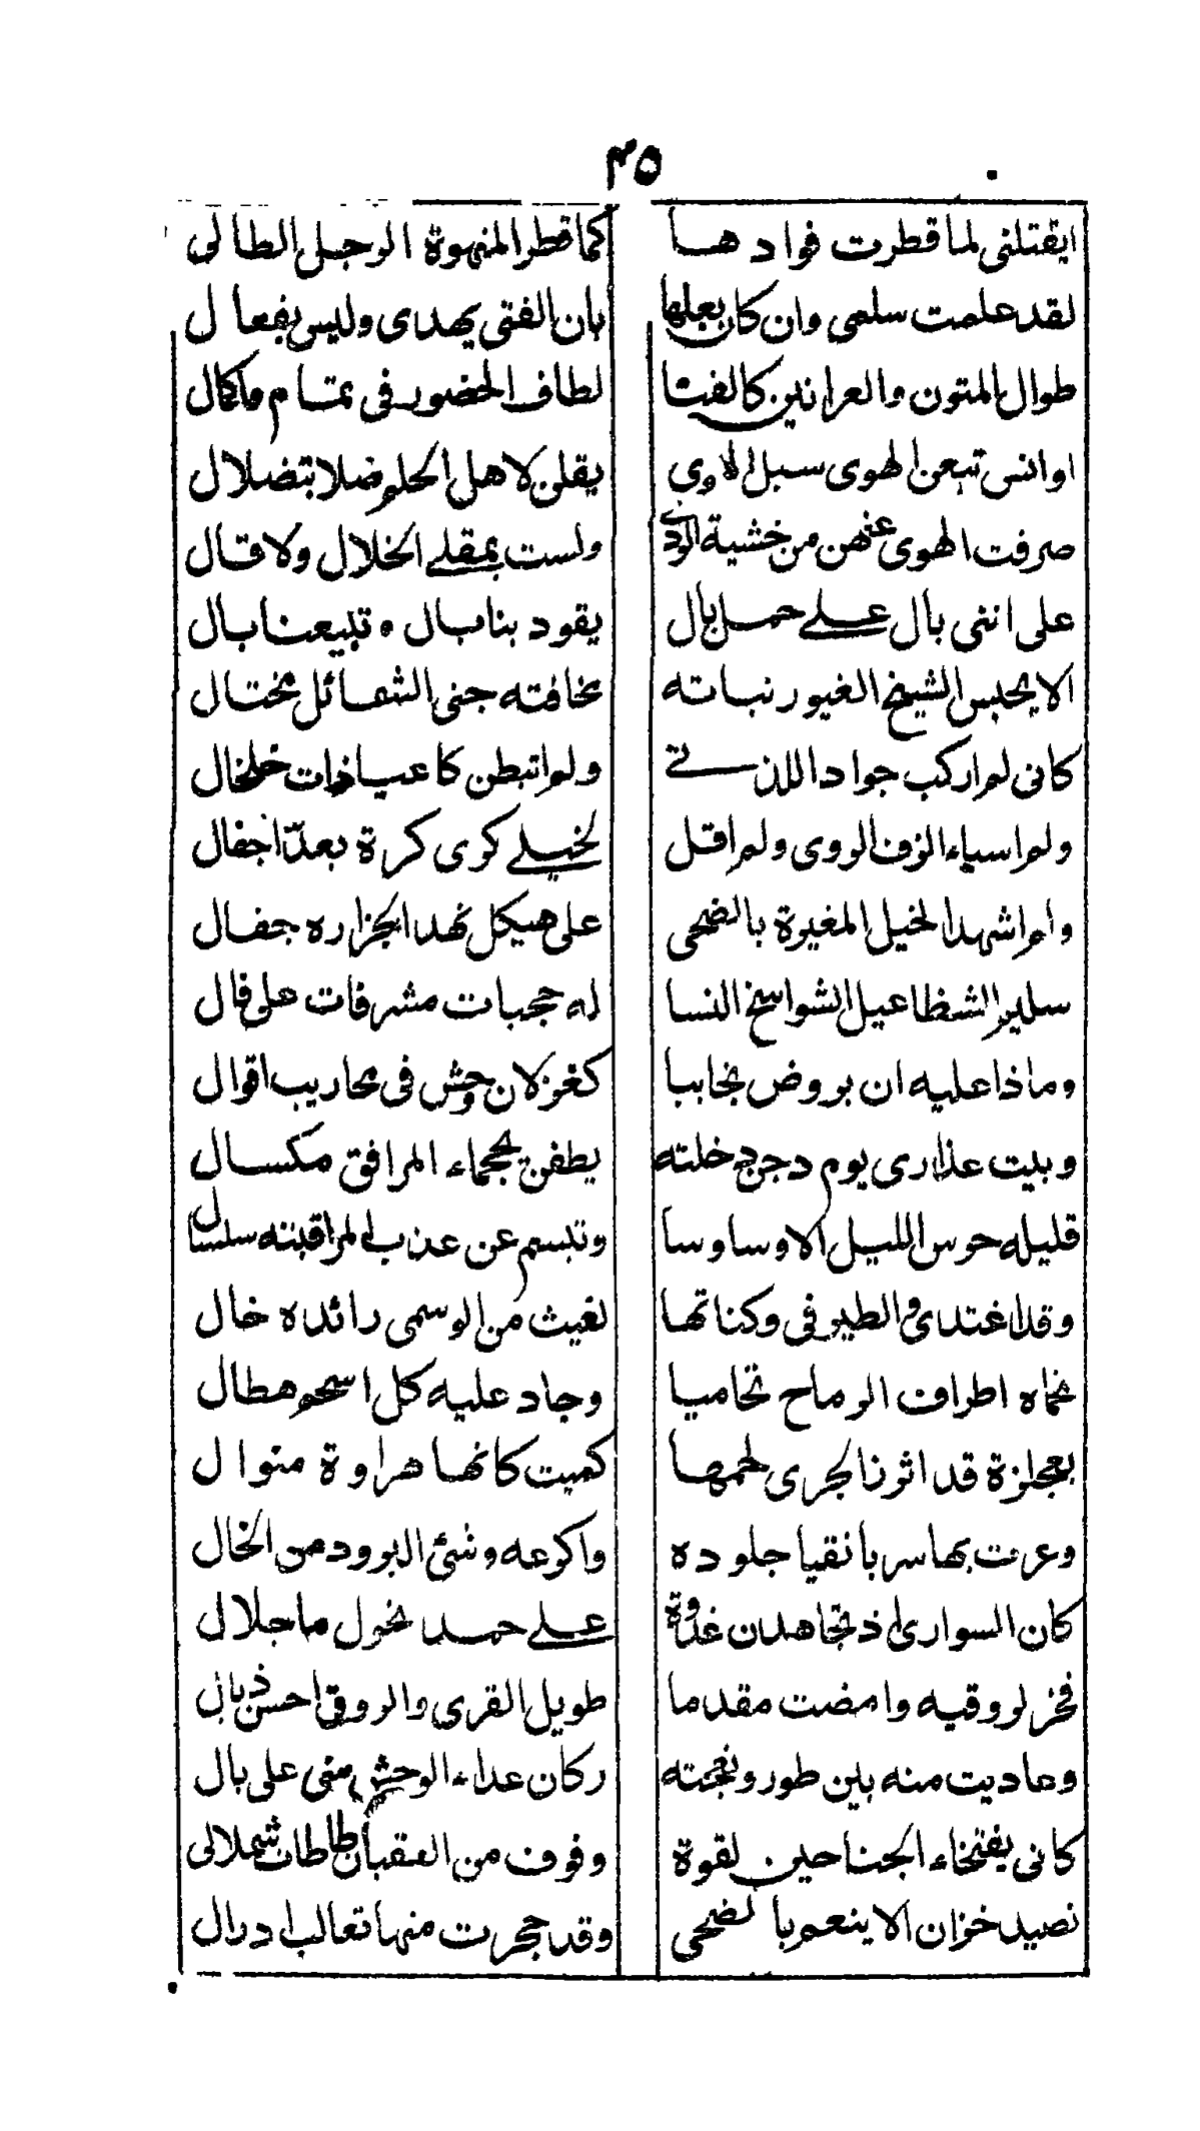 ٣٥
ايقتلنى لما قطرت فواد هسا كما قطر المنهوة الرجل الطالى
لقد علمت سلمى وان كان بعلها بان الفتى يهدى وليس بفعال
طوال المتون والعرانين كالقنا لطاف الخضور فى تمام وكمال
اوانس تبعن الهوى سبل الاوى يقلن لاهل الحلم ضلا بتضلال
صرفت الهوى عنهن من خشية الردى ولست بمقلى الخلال ولا قال
على اننى بال على حمل بال يقود بنا بال وتبيعنا بال
الا يحبس الشيخ الغيور نباته مخافته جنى الشمائل مختال
كانى لم اركب جوادا للذتى ولم اتبطن كاعبا ذات خلخال
ولم اسباء الزق الروى ولم اقل لخيلى كرى كرة بعد اجفال
ولم اشهد الخيل المغيرة بالضحى على هيكل نهد الجزاره جفال
سليم الشظا عبل الشوا سخ النسا له حجبات مشرفات على فال
وماذا عليه ان بروض نجابا كغزلان وحش فى محاريب اقوال
وبيت عذارى يوم دجن دخلته يطفن بجماء المرافق مكسال
قليله حرس الليل الا وساوسا وتبسم عن عذب المراقبته سلسال
وقد اغتدى والطير فى وكناتها لغيث من الوسمى رائده خال
تحماه اطراف الرماح تحاميا وجاد عليه كل اسحم هطال
بعجلزة قد اثرنا لجرى لحمها كميت كانها هراوة منوال
وعرت بها سربا نقيا جلوده واكرعه وشئ البرود من الخال
كان السوارى اذ تجاهدن غدوة على حمد نخول ماجلال
فخر لروقيه وامضت مقدما طويل القرى والروق احسن ذيال
وعاديت منه بين طور ونعجته ركان عداء الوحش منى على بال
كانى بفتخاء الجناحين لقوة وفوف من العقبان طاطات شملالى
نصيد خزان الا ينعم بالضحى وقد حجرت منها تعالب ادرال